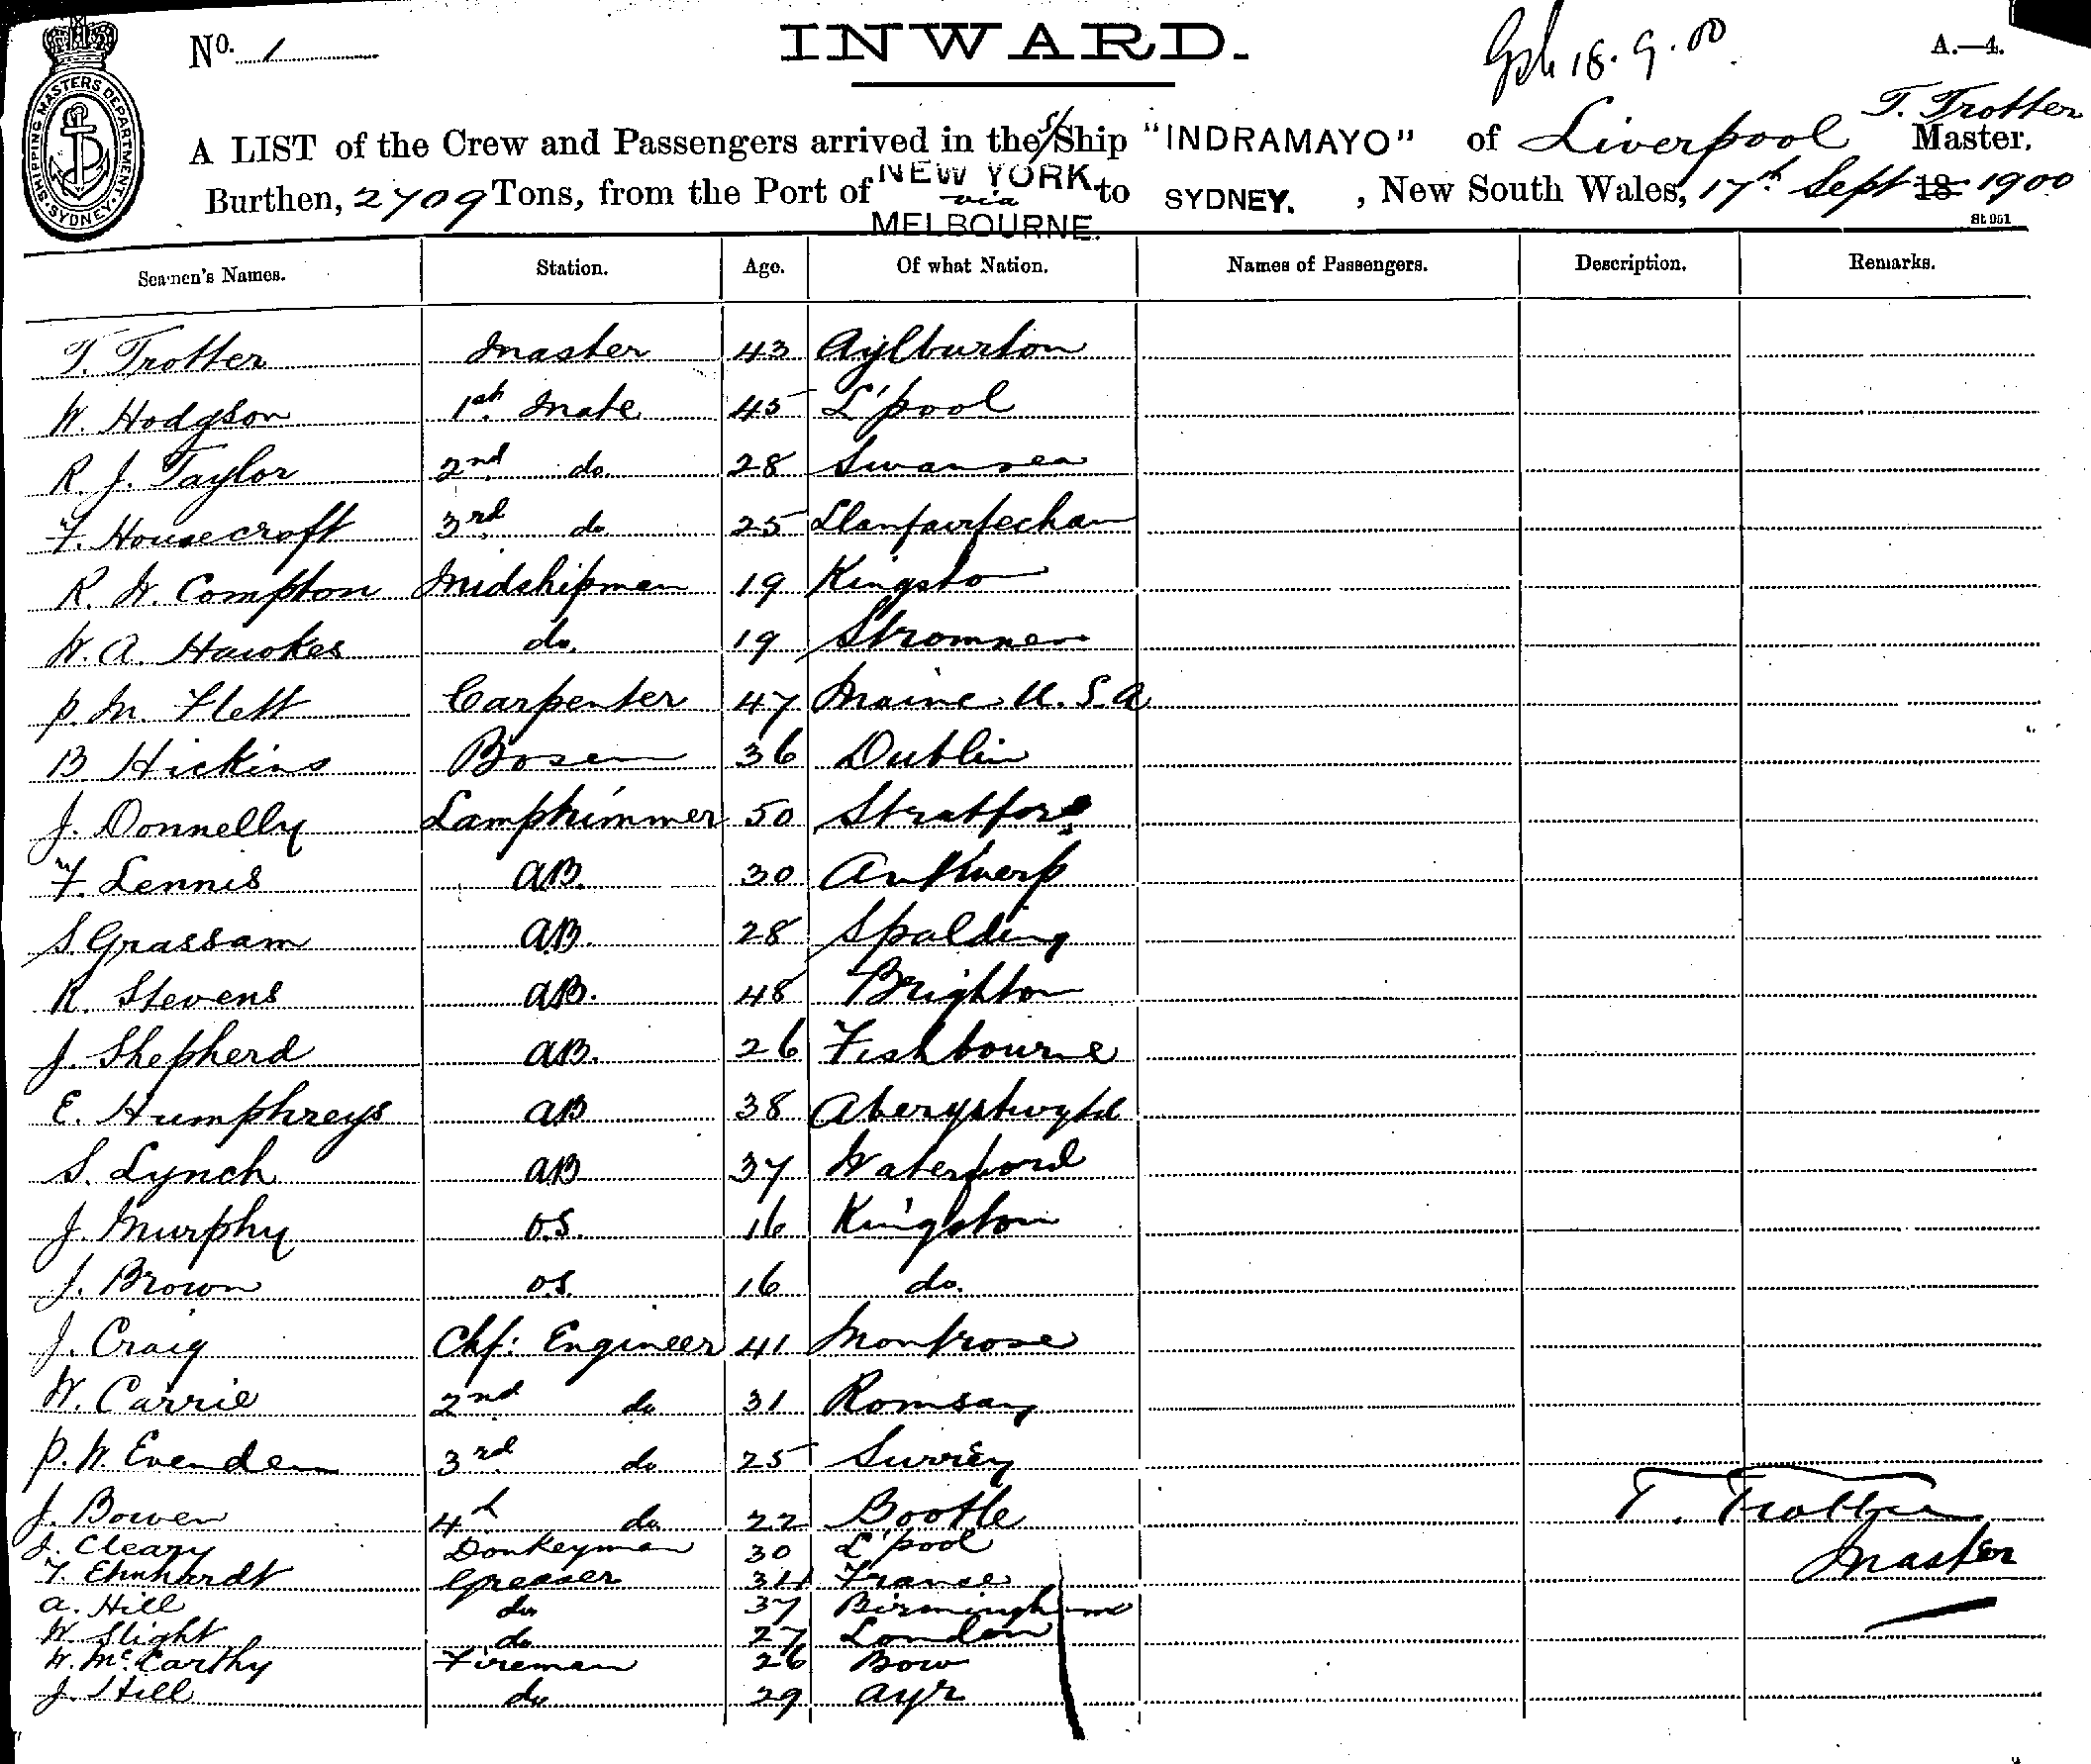 No. 1
INWARD.
18.9.00
A.—4.
SHIPPING MASTERS DEPARTMENT
SYDNEY
T. Trotter
A LIST of the Crew and Passengers arrived in the S/Ship "INDRAMAYO" of Liverpool Master.
Burthen, 2709 Tons, from the Port of NEW YORK via MELBOURNE. to SYDNEY. , New South Wales, 17th Sept 18 1900
St 951
Seamen's Names. Station. Age. Of what Nation. Names of Passengers. Description. Remarks.
T. Trotter Master 43 Aylburton
W. Hodgson 1st Mate 45 L'pool
R. J. Taylor 2nd do 28 Swansea
F. Housecroft 3rd do 25 Llanfairfechan
R. W. Compton Midshipman 19 Kingston
W. A. Hawkes do. 19 Stromness
P. M. Flett Carpenter 47 Maine U.S.A
B Hickins Bosen 36 Dublin
J. Donnelly Lamptrimmer 50 Stratford
F. Lennis AB. 30 Antwerp
S. Grassam AB. 28 Spalding
R. Stevens AB. 48 Brighton
J. Shepherd AB. 26 Fishbourne
E. Humphreys AB 38 Aberystwyth
S. Lynch AB 37 Waterford
J. Murphy O.S. 16 Kingston
J. Brown O.S. 16 do.
J. Craig Chf: Engineer 41 Montrose
W. Carrie 2nd do 31 Romsay
P. W. Evenden 3rd do 25 Surrey
J. Bowen 4th do 22 Bootle
J. Cleary Donkeyman 30 L'pool
F. Ehnhardt Greaser 31 France
A. Hill do 37 Birmingham
W. Slight do 27 London
W. McCarthy Fireman 26 Bow
J. Hill do 29 Ayr
T. Trotter
Master